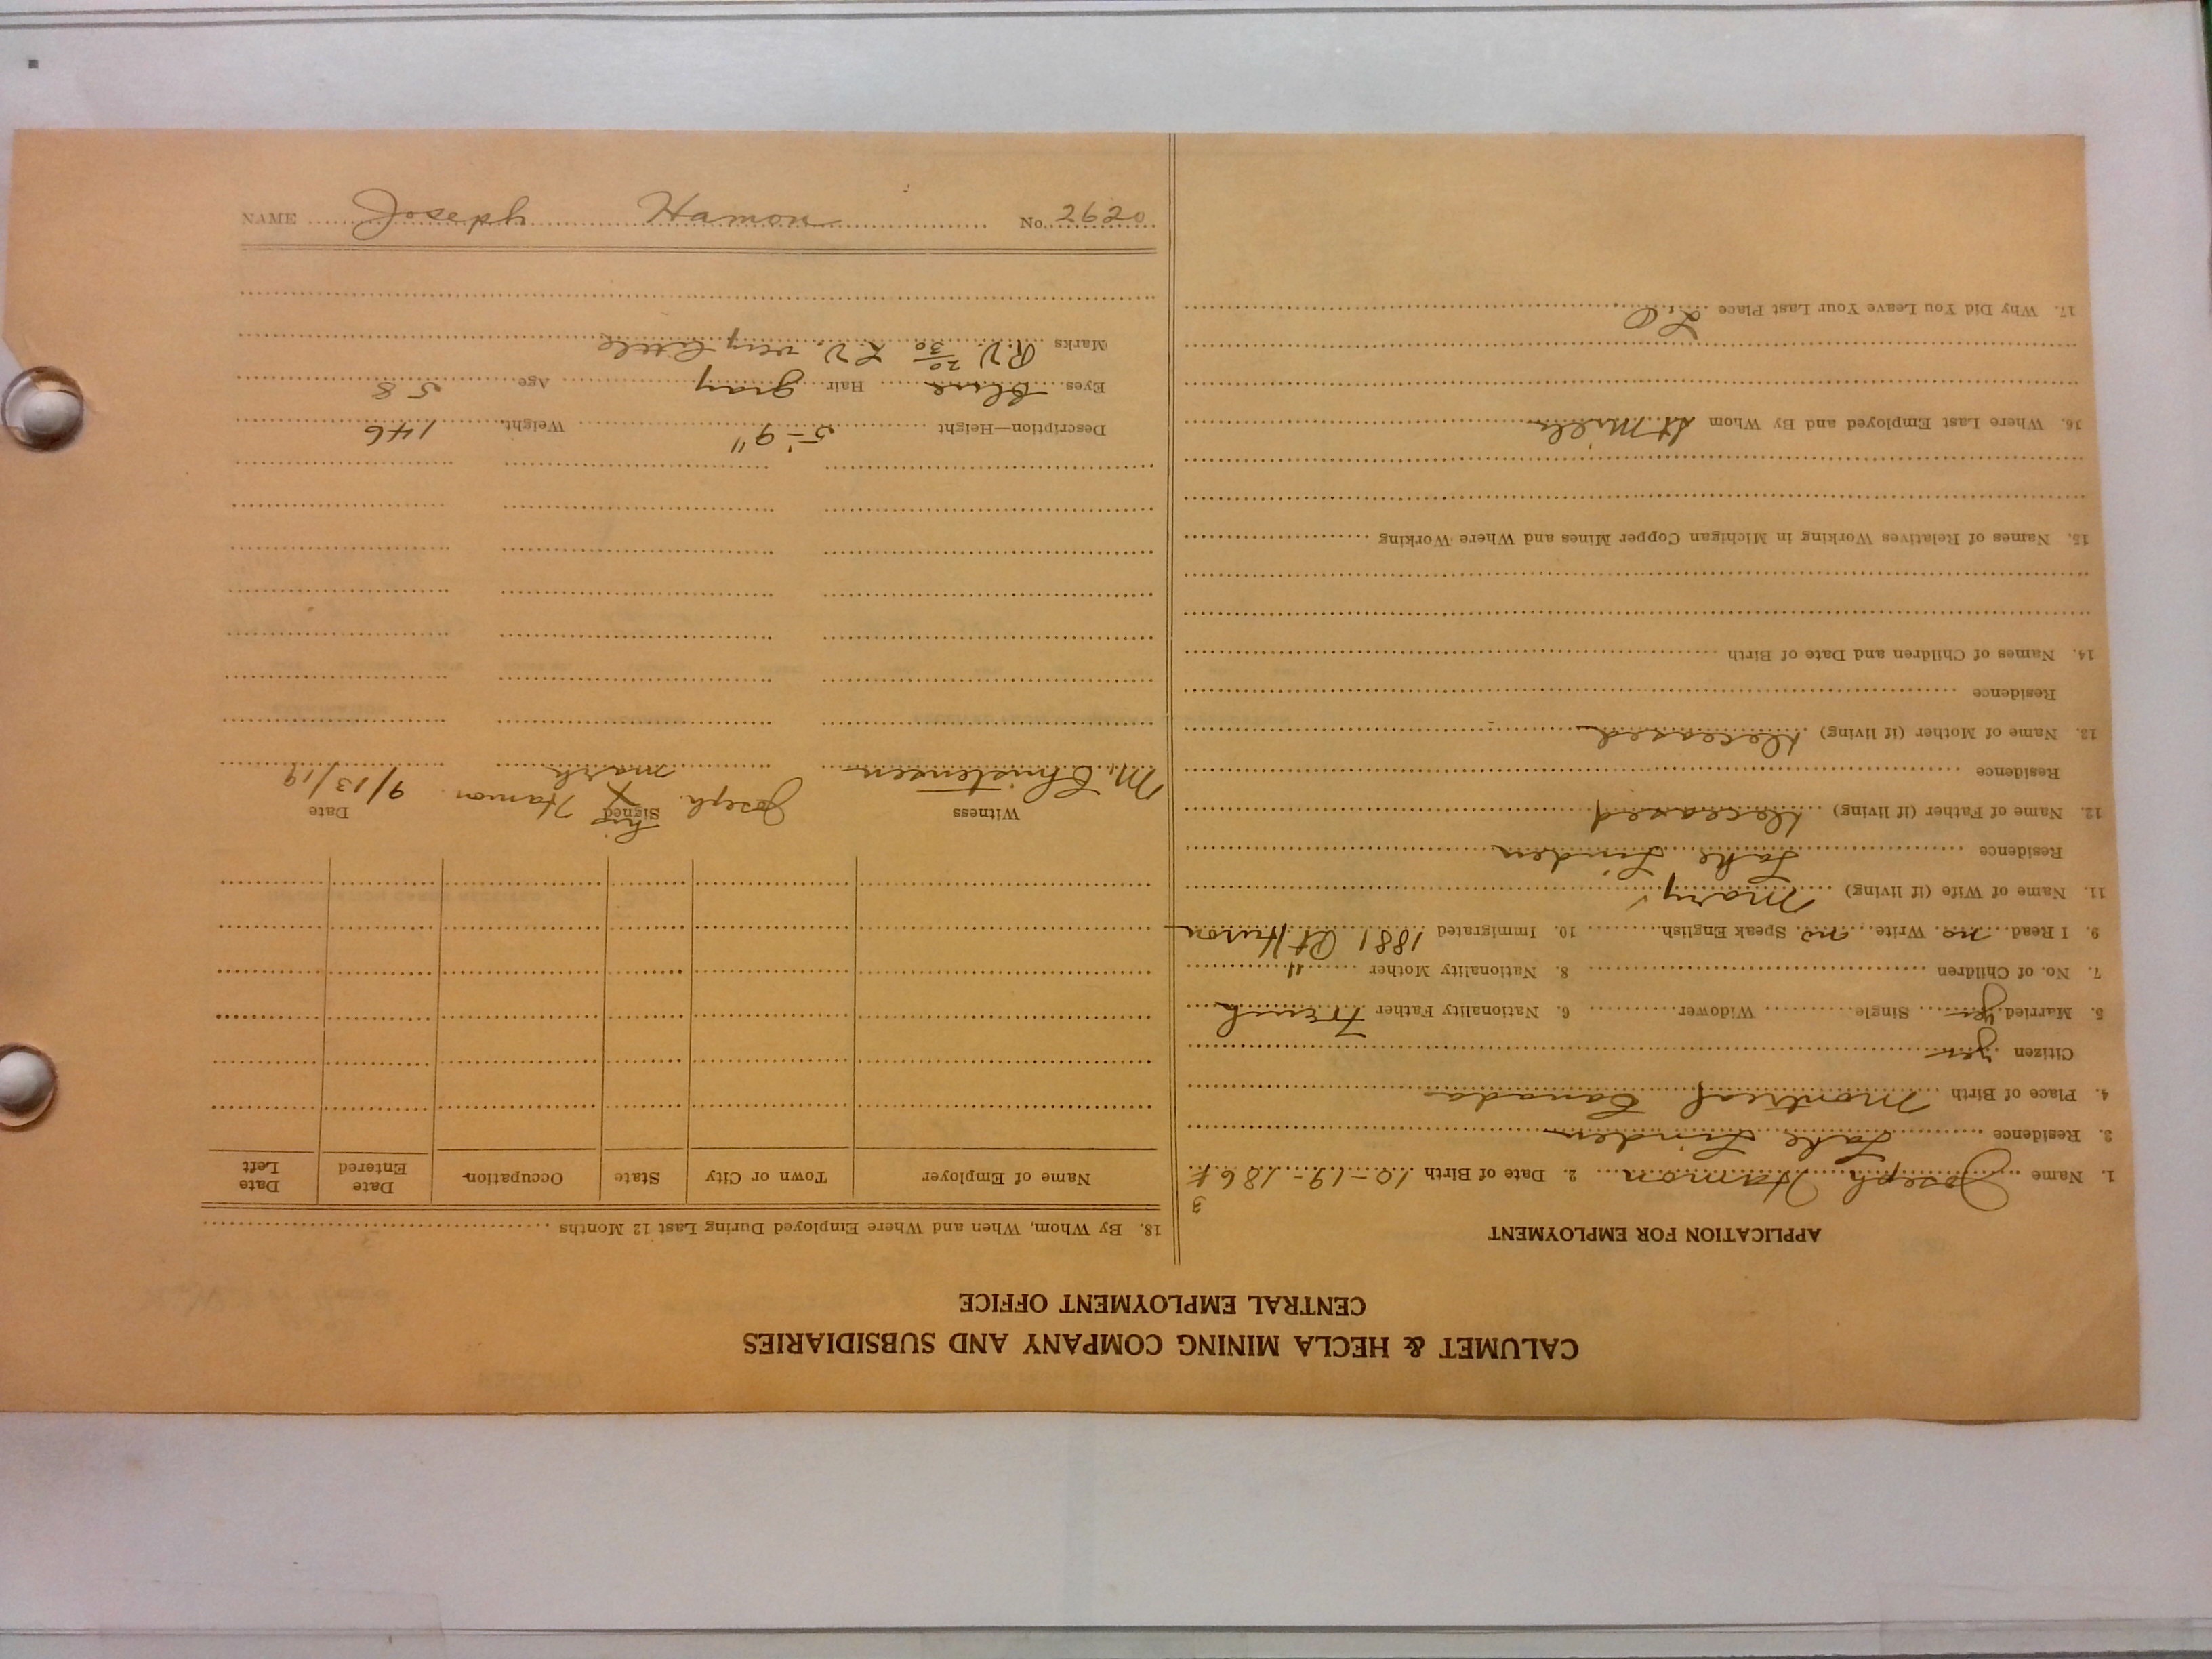 CALUMET & HECLA MINING COMPANY AND SUBSIDIARIES
CENTRAL EMPLOYMENT OFFICE
APPLICATION FOR EMPLOYMENT
3
1. Name Joseph Hamon 2. Date of Birth 10-19-186
3. Residence Lake Linden
4. Place of Birth Montreal Canada
Citizen yes
5. Married yes Single Widower 6. Nationality Father French
7. No. of Children 8. Nationality Mother "
9. I Read no Write no Speak English 10. Immigrated 1881 Pt Huron
11. Name of Wife (if living) Mary
Residence Lake Linden
12. Name of Father (if living) Deceased
Residence
13. Name of Mother (if living) Deceased
Residence
14. Names of Children and Date of Birth
15. Names of Relatives Working in Michigan Copper Mines and Where Working
16. Where Last Employed and By Whom St. Mills
17. Why Did You Leave Your Last Place L.O
18. By Whom, When and Where Employed During Last 12 Months
Name of Employer Town or City State Occupation Date Entered Date Left
Witness Signed Date
his
Joseph X Hamon 9/13/19
M. Christensen mark
Description—Height 5'-9" Weight 146
Eyes Blue Hair gray Age 58
Marks R.V. 20/30 L.V. very little
NAME Joseph Hamon No. 2620